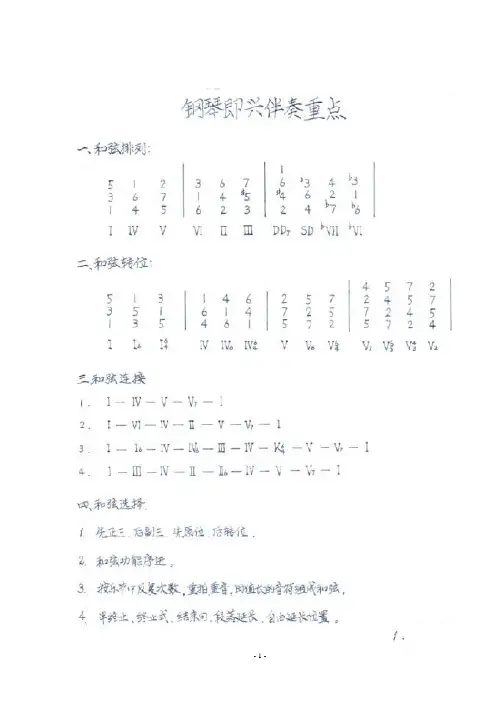 钢琴即兴伴奏重点
一、和弦排列:
1
5 1 2 3 6 7 6 #3 4 b3
3 6 7 1 4 #5 #4 6 2 1
1 4 5 6 2 3 2 4 b7 b6
I IV V VI II III DD7 SD bVII bVI
二、和弦转位:
4 5 7 2
5 1 3 1 4 6 2 5 7 2 4 5 7
3 5 1 6 1 4 7 2 5 7 2 4 5
1 3 5 4 6 1 5 7 2 5 7 2 4
I I6 I64 IV IV6 IV64 V V6 V64 V7 V65 V43 V2
三.和弦连接
1. I — IV — V — V7 — I
2. I — VI — IV — II — V — V7 — I
3. I — I6 — IV — IV6 — III — IV — K64 — V — V7 — I
4. I — III — IV — II — II6 — IV — V — V7 — I
四、和弦选择.
1. 先正三.后副三.先原位.后转位.
2. 和弦功能序进。
3. 按乐节中反复次数,重拍重音,时值长的音符组成和弦,
4. 半终止,终止式、结束句、段落延长、自由延长位置。
1.
- 1 -